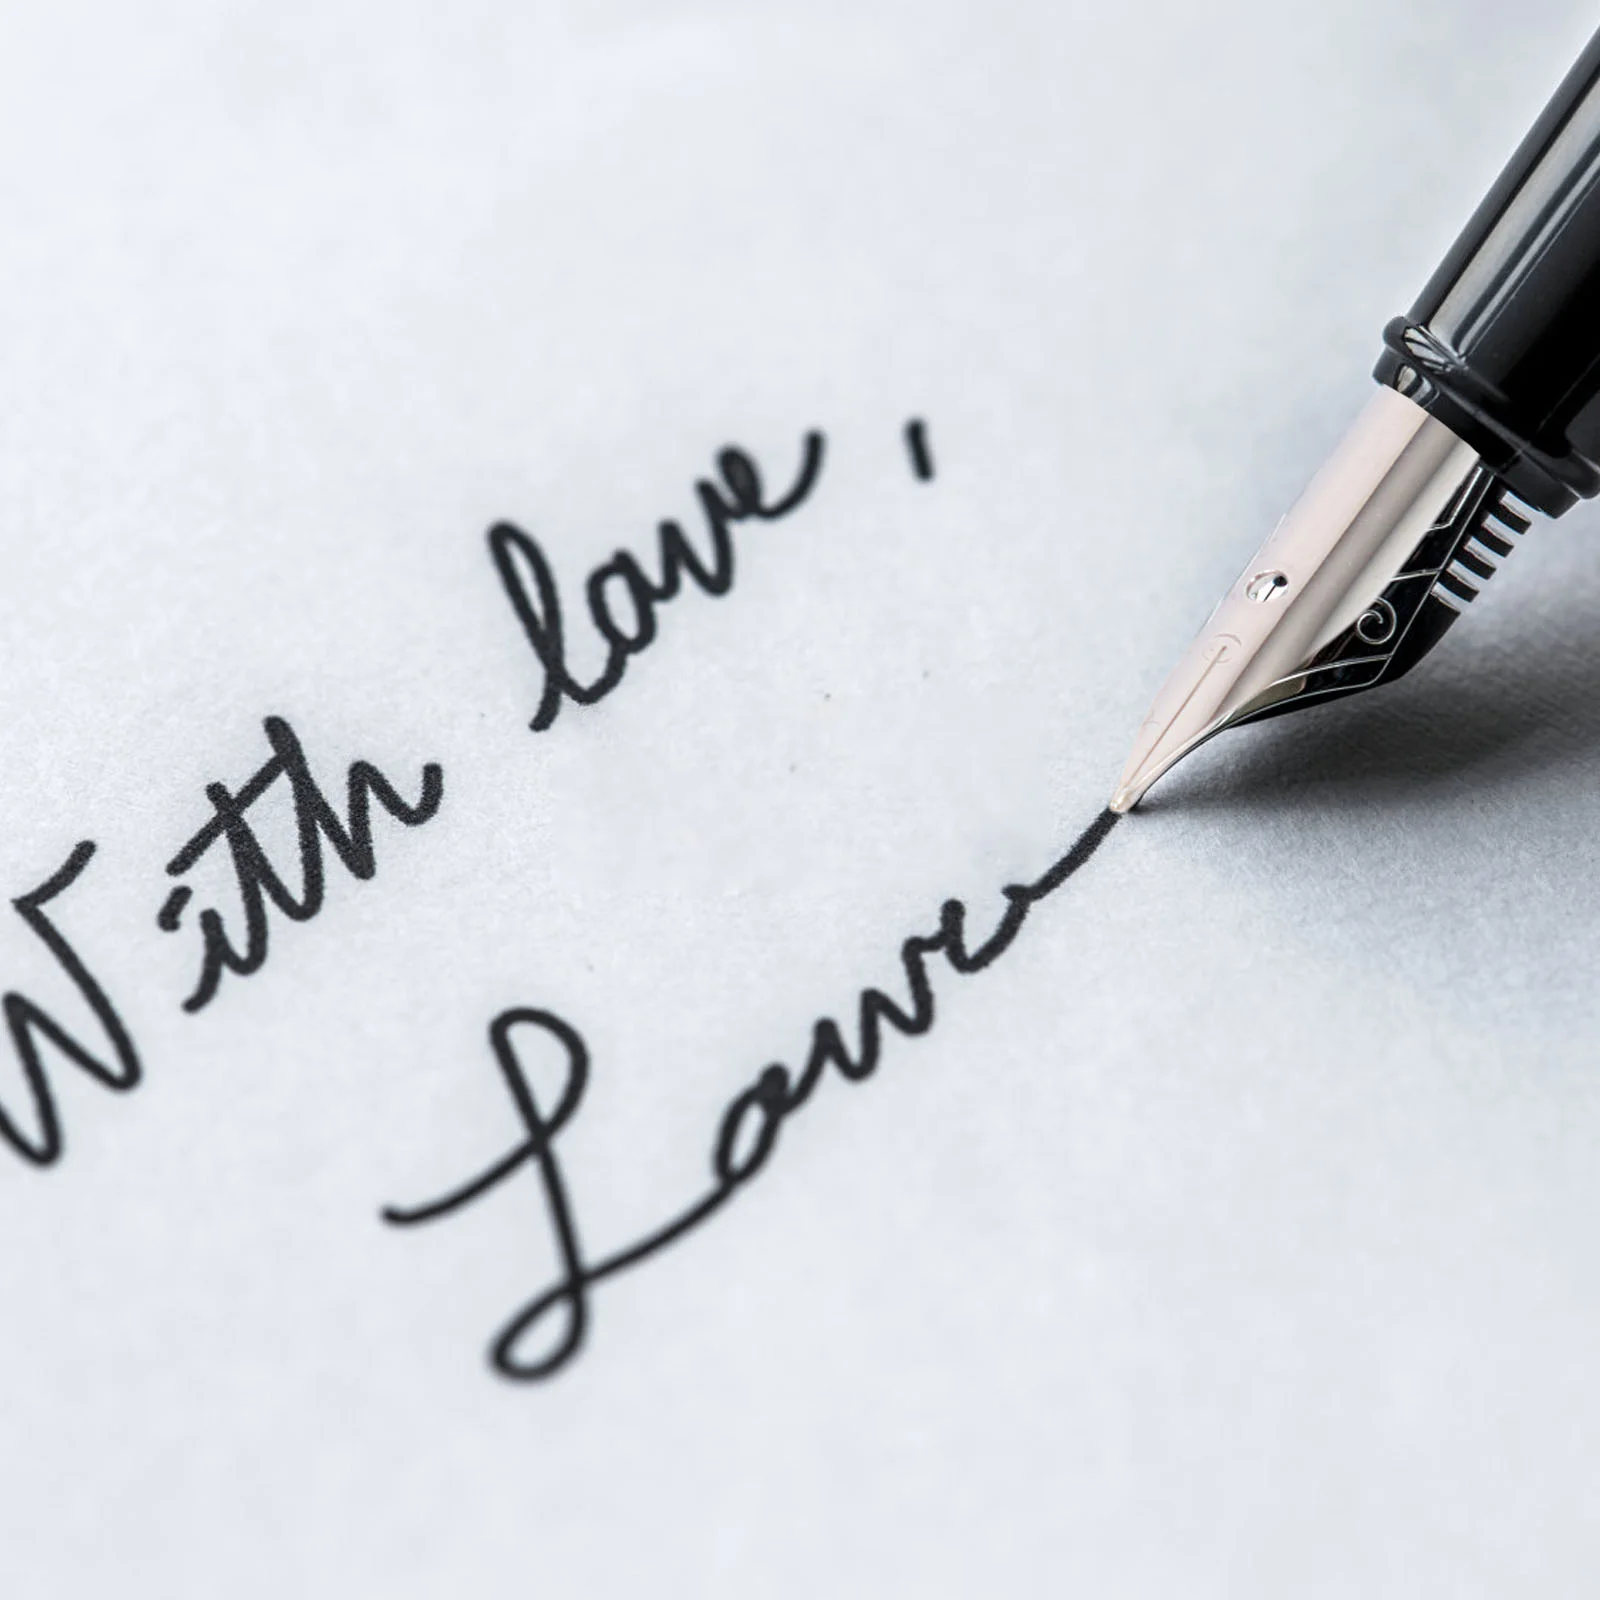 With love,
Laura